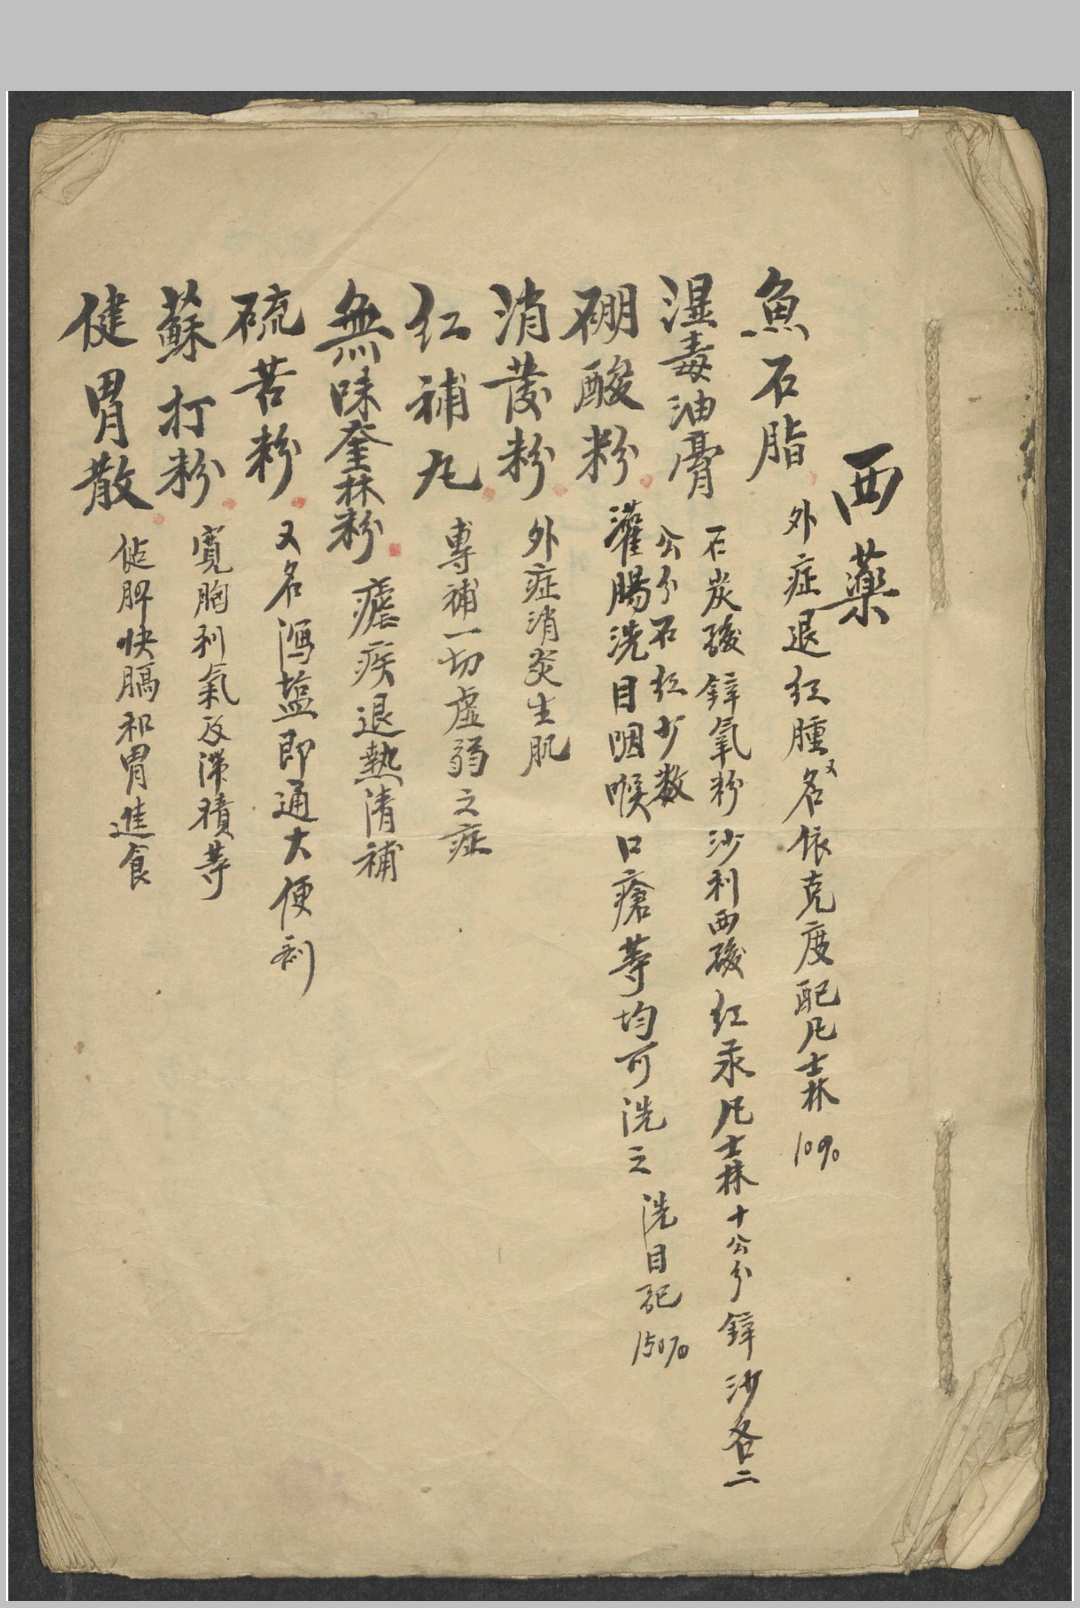 西藥
魚石脂 外症退紅腫又名依克度配凡士森林 10%
湿毒油膏 石炭酸鋅氧粉沙利西酸紅汞凡士森林十公分鋅沙各二
公分石紅少数
硼酸粉 灌腸洗目咽喉口瘡等均可洗之 洗目配 150%
消發粉 外症消炎生肌
红補丸 專補一切虛弱之症
無味奎林粉 瘧疾退熱清補
硫苦粉 又名瀉盐即通大便利
蘇打粉 寬胸利氣及滞積等
健胃散 佐脾快膈和胃進食